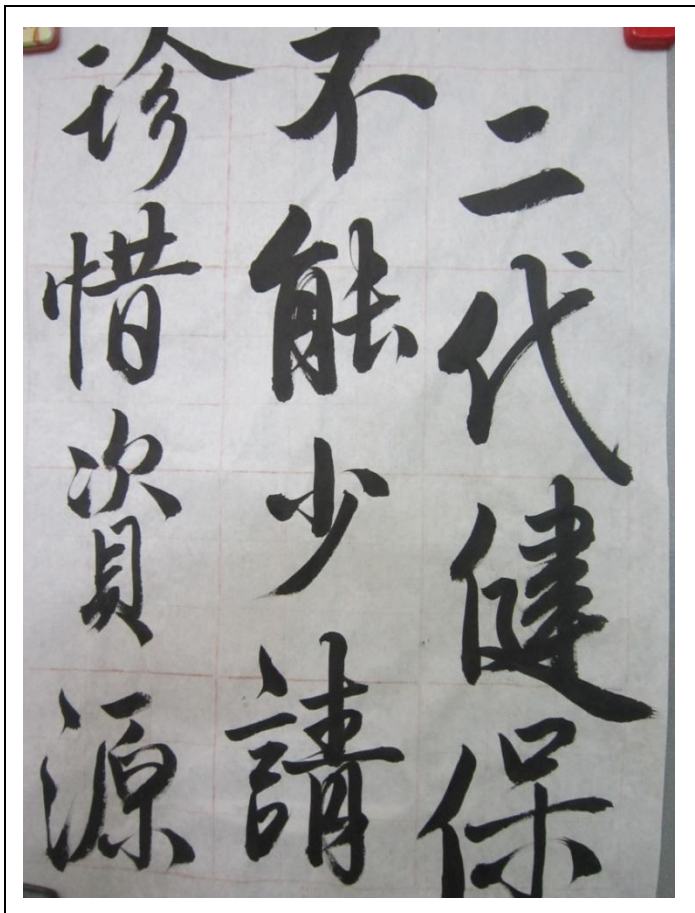 二代健保
不能少請
珍惜資源